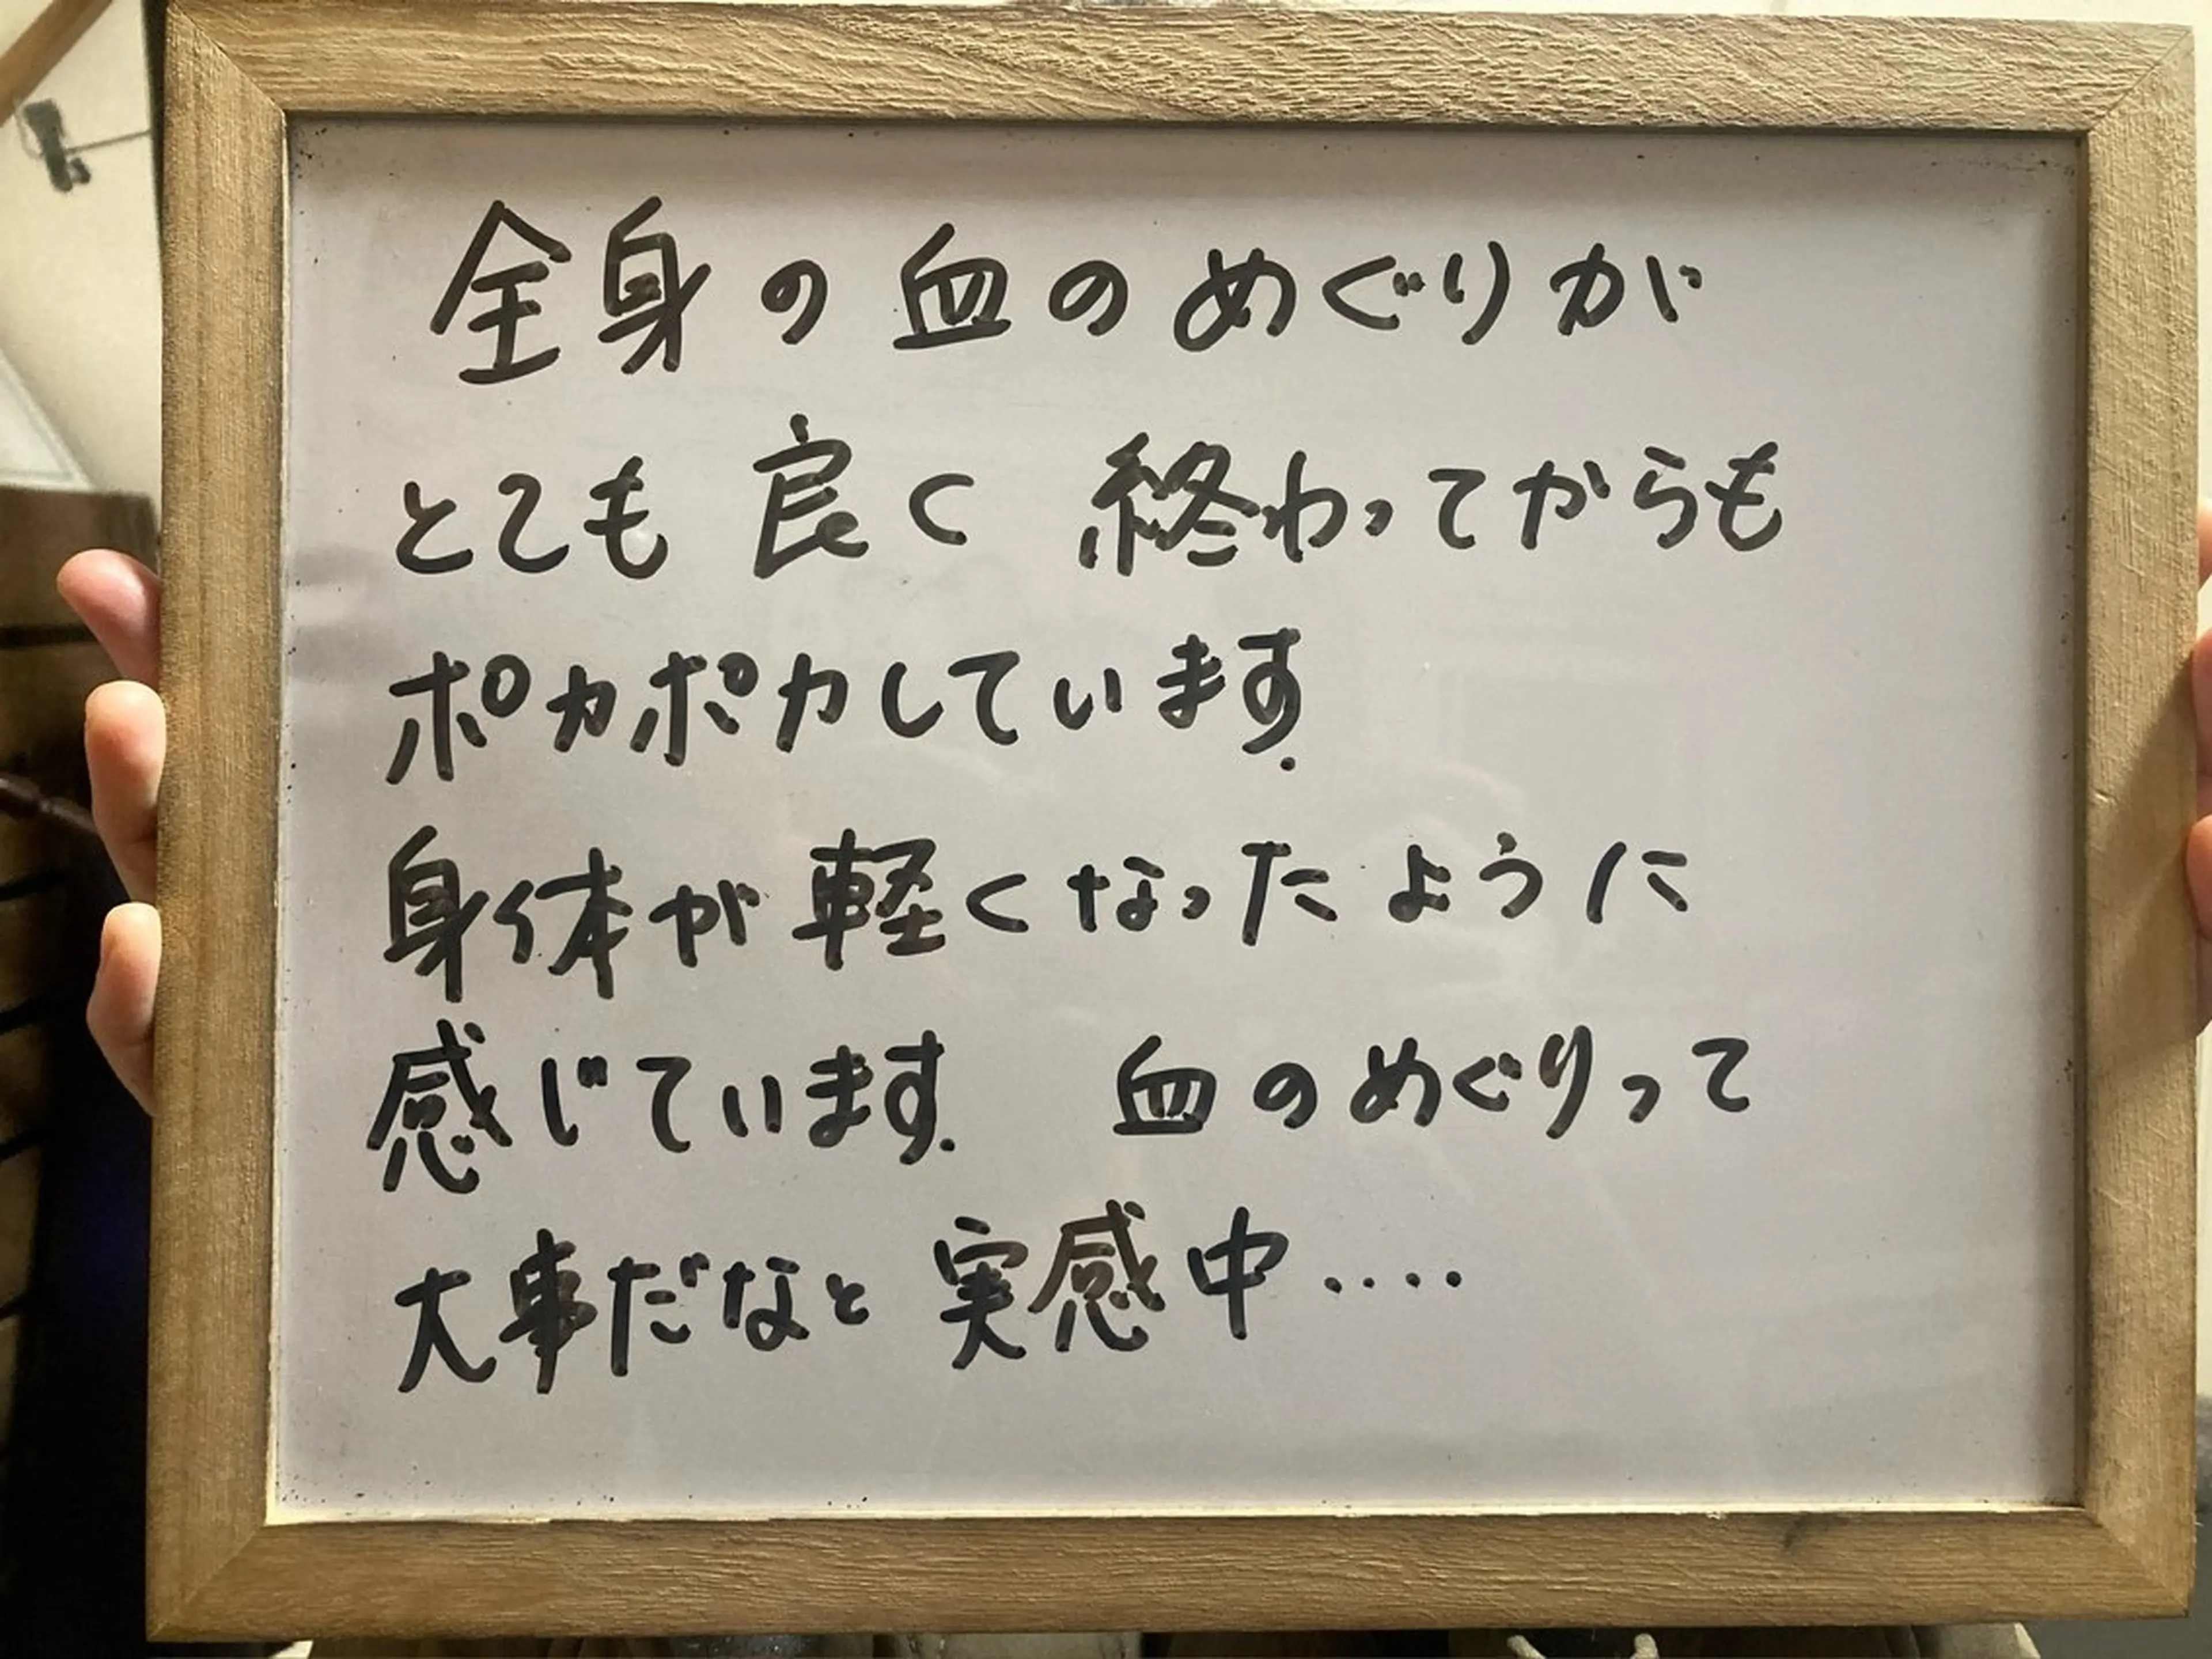 全身の血のめぐりが
とても良く 終わってからも
ポカポカしています.
身体が軽くなったように
感じています. 血のめぐりって
大事だなと 実感中....